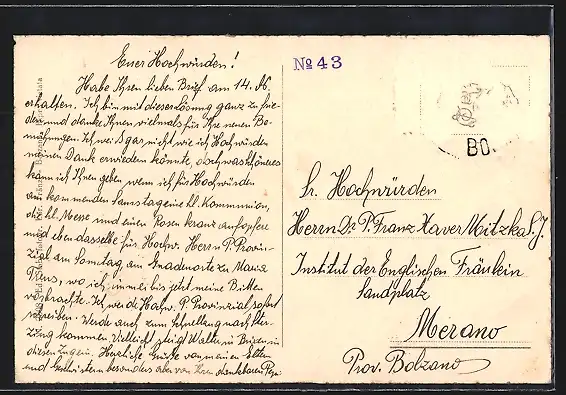 Euer Hochwürden!
Habe Ihren lieben Brief am 14. ds.
erhalten. Ich bin mit dieser Lösung ganz zufrie-
den und danke Ihnen vielmals für Ihre neuen Be-
mühungen. Ich weiß gar nicht wie ich Hochwürden
meinen Dank erwiedern könnte, doch was schöneres
kann ich Ihnen geben wenn ich für Hochwürden
am kommenden Samstag eine hl. Kommunion,
die hl. Messe und einen Rosenkranz aufopfere
und eben dasselbe für Hochw. Herrn P. Provin-
zial am Samstag, am Gnadenorte zu Maria
wo ich immer bis jetzt meine Bitten
vorbrachte. Ich werde Hochw. P. Provinzial sofort
schreiben. Werde auch zum Schnellzug nach Ster-
zing kommen. Vielleicht steigt Walter in Brixen in
diesen Zug ein. Herzliche Grüße von meinen Eltern
und Geschwistern besonders aber von Ihrem dankbaren
No 43
BO.
Sr. Hochwürden
Herrn Dr. P. Franz Xaver Mitzka S.J.
Institut der Englischen Fräulein
Sandplatz
Merano
Prov. Bolzano